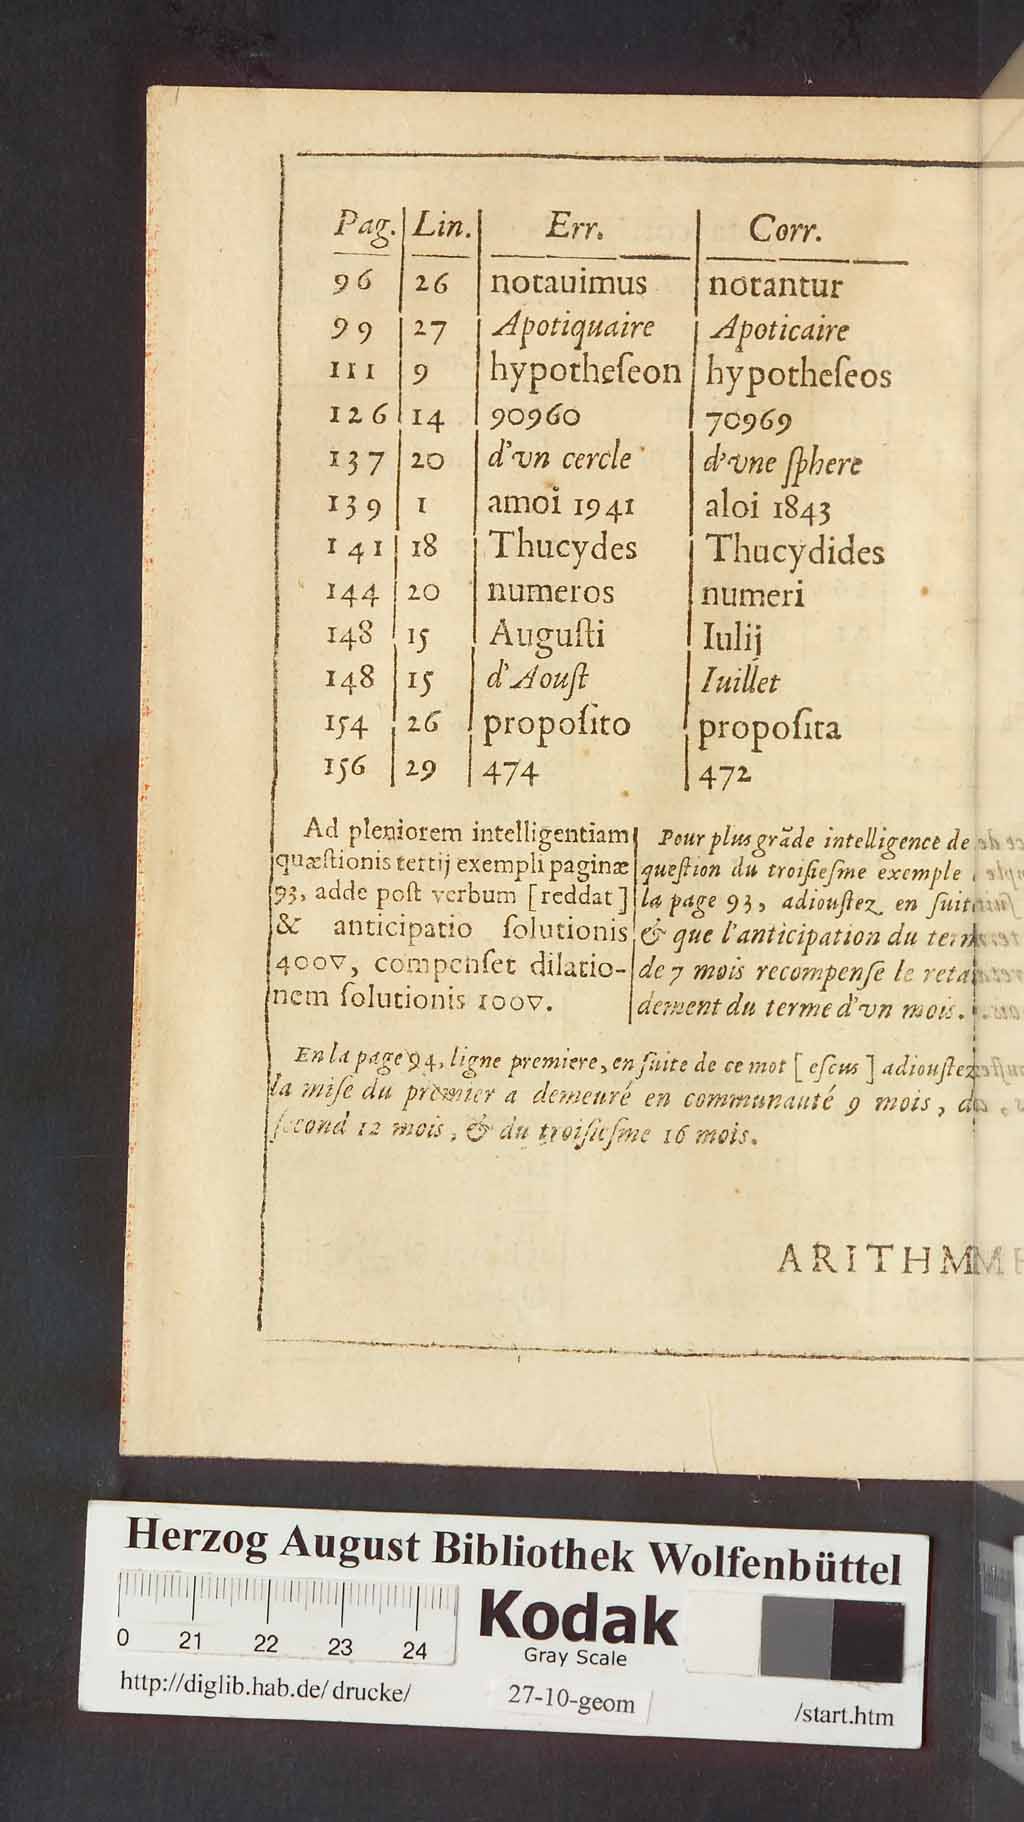 Pag. Lin. Err. Corr.
96 26 notauimus notantur
99 27 Apotiquaire Apoticaire
111 9 hypotheſeon hypotheſeos
126 14 90960 70969
137 20 d'vn cercle d'vne ſphere
139 1 amoi 1941 aloi 1843
141 18 Thucydes Thucydides
144 20 numeros numeri
148 15 Auguſti Iulij
148 15 d'Aouſt Iuillet
154 26 propoſito propoſita
156 29 474 472
Ad pleniorem intelligentiam
quæſtionis tertij exempli paginæ
93, adde poſt verbum [reddat]
& anticipatio ſolutionis
400▽, compenſet dilatio-
nem ſolutionis 100▽.
Pour plus grãde intelligence de
queſtion du troiſieſme exemple
la page 93, adiouſtez en ſuit
& que l'anticipation du
de 7 mois recompenſe le reta
dement du terme d'vn mois.
En la page 94, ligne premiere, en ſuite de ce mot [ eſcus ] adiouſtez
la miſe du premier a demeuré en communauté 9 mois,
ſecond 12 mois, & du troiſieſme 16 mois.
ARITHM
Herzog August Bibliothek Wolfenbüttel
0 21 22 23 24
Kodak
Gray Scale
http://diglib.hab.de/drucke/ 27-10-geom /start.htm